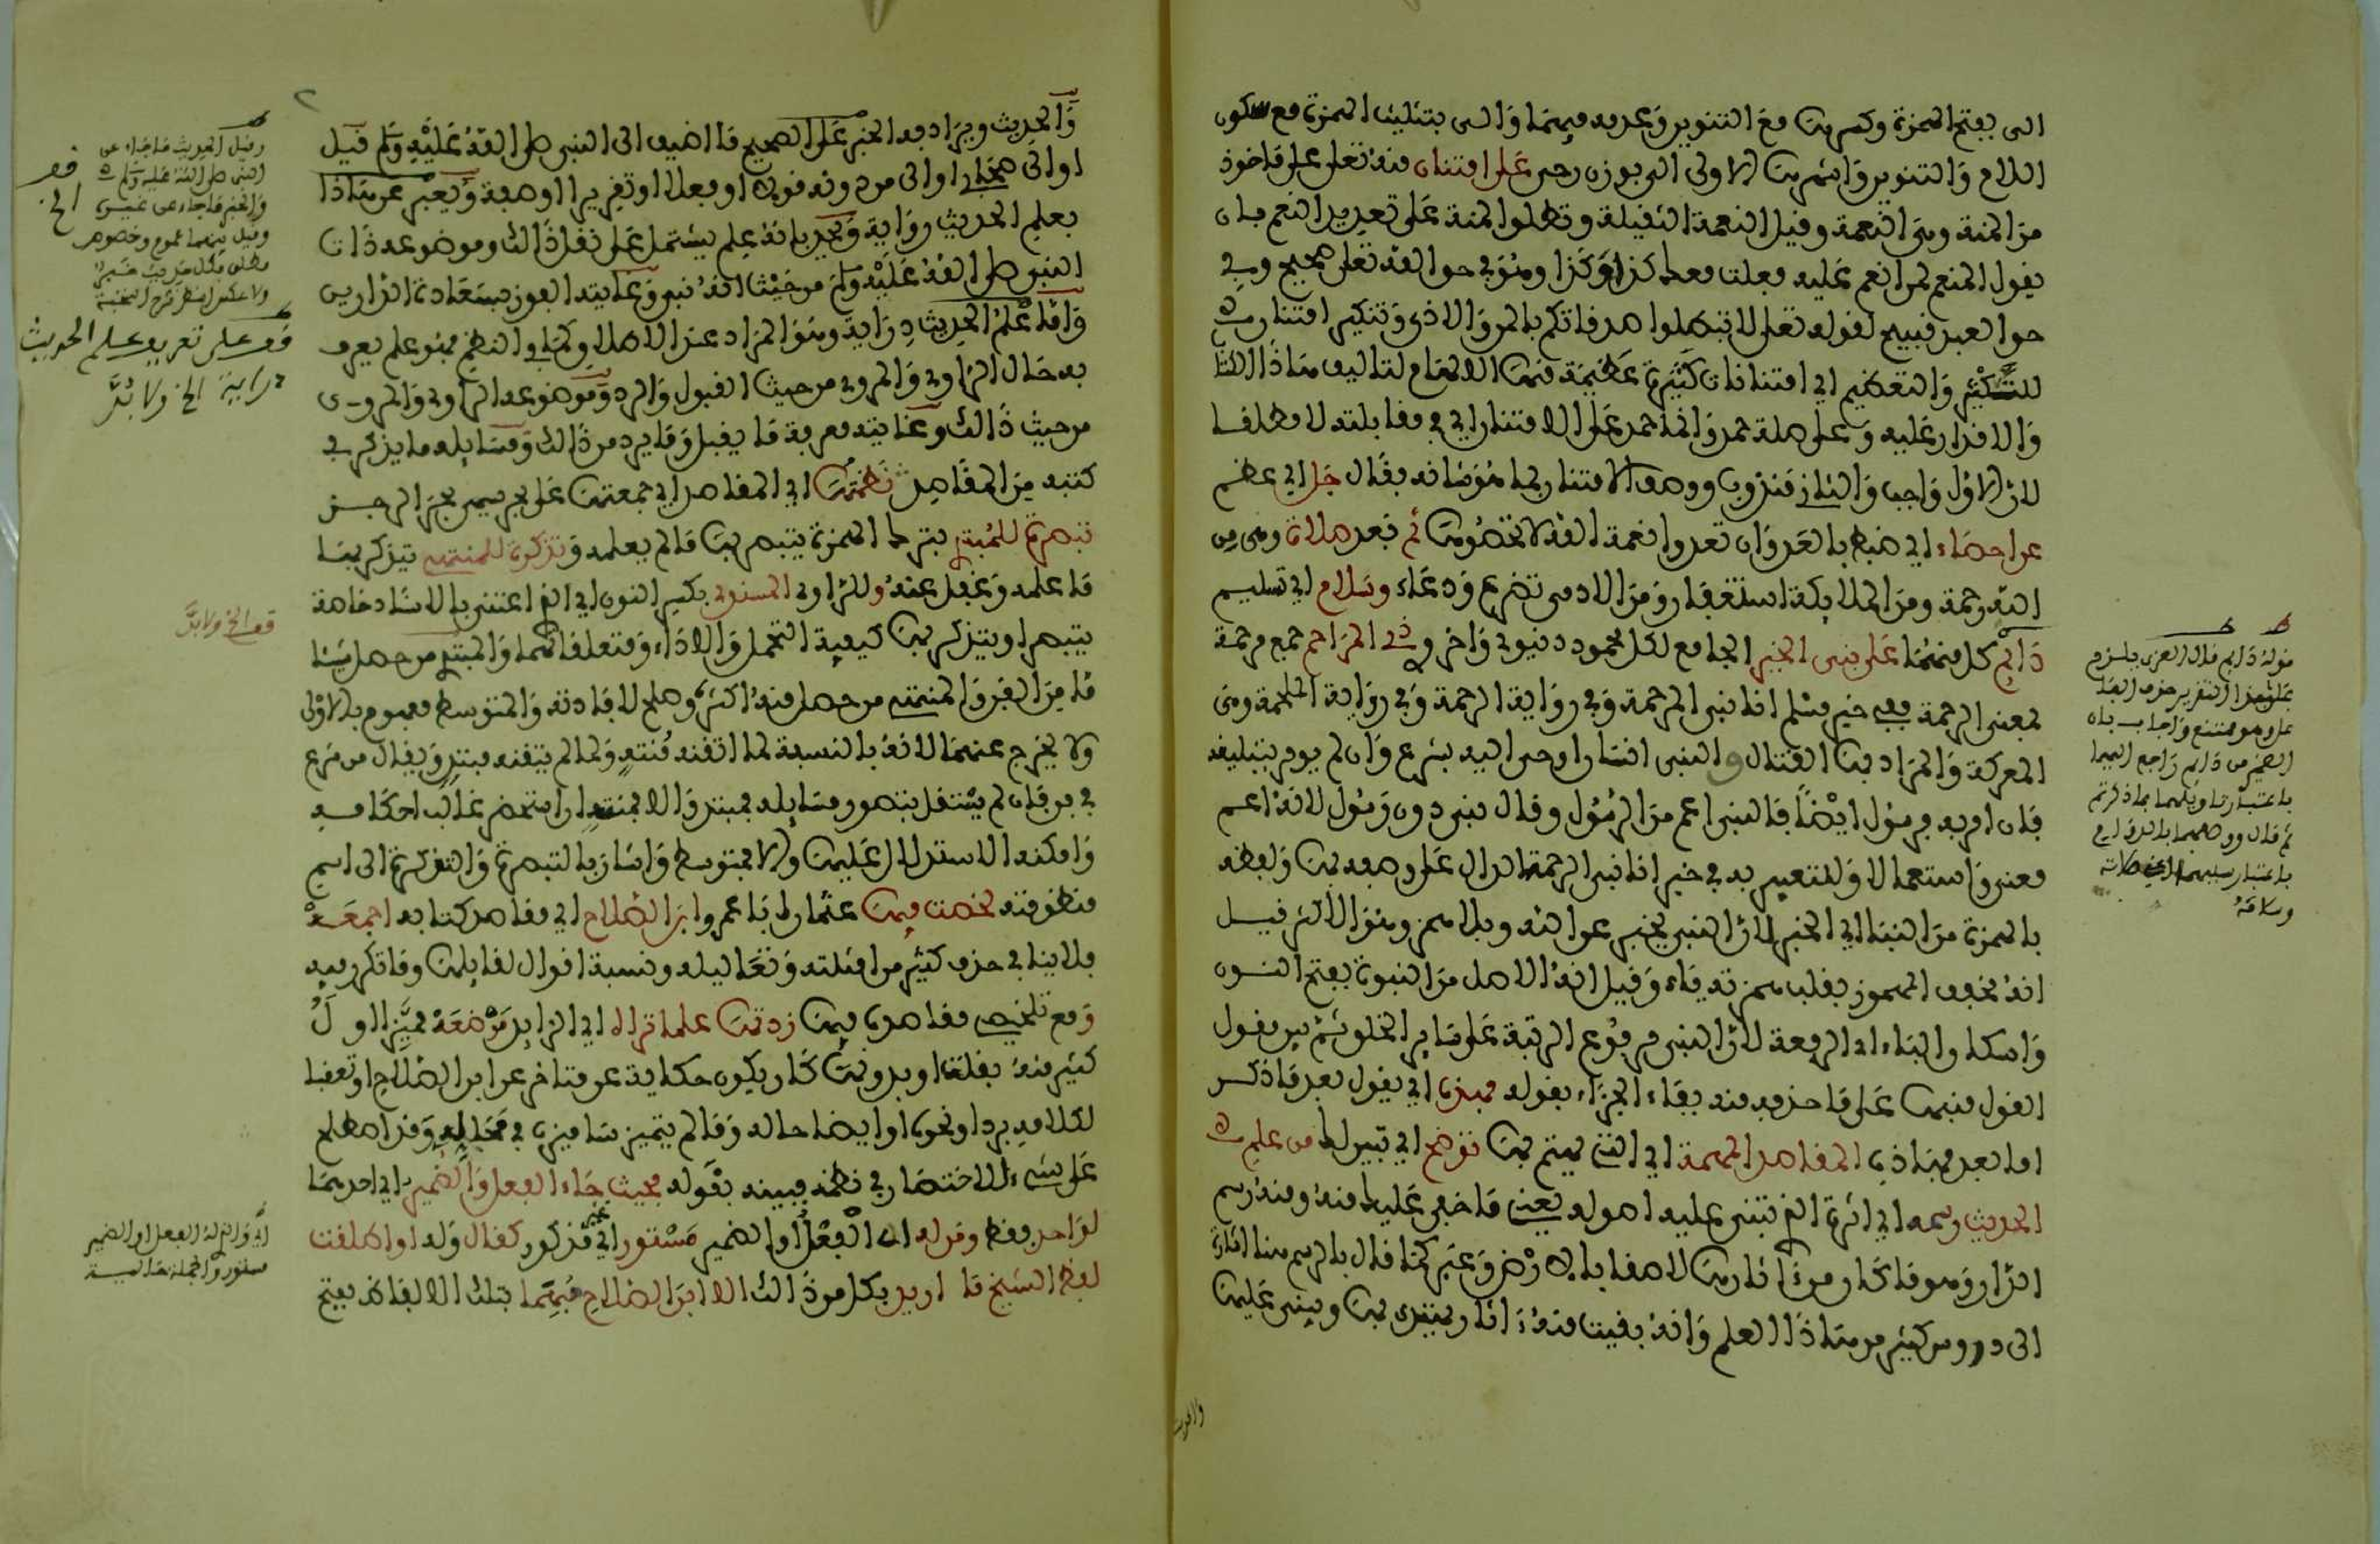 الى بفتح الهمزة وكسرها مع التنوين وعدمه فيهما والى بتثليث الهمزة مع سكون
اللام والتنوين واشهرها الاولى التي بوزن رحى على امتنان منه تعلى علي ماخوذ
من المنة وهي النعمة وقيل النعمة الثقيلة وتطلق المنة على تعديد النعم بان
يقول المنعم لمن انعم عليه فعلت معك كذا وكذا وهو في حق الله تعلى صحيح وفي
حق العبد قبيح لقوله تعلى لا تبطلوا صدقاتكم بالمن والاذى وتنكير امتنان
للتكثير والتعظيم اي امتنانات كثيرة عظيمة منها الالهام لتاليف هاذا الكتاب
والاقدار عليه وعلى صلة حمد وانما حمد على الامتنان اي في مقابلته لا مطلقا
لان الاول واجب والثاني مندوب ووصف الامتنان بما هو شانه فقال جل اي عظم
عن احصاء اي ضبط بالعد وان تعدوا نعمة الله لا تحصوها ثم بعد صلاة وهي من
الله رحمة ومن الملايكة استغفار ومن الادمي تضرع ودعاء وسلام اي تسليم
دايم كل منهما على نبي الخير الجامع لكل محمود دنيوي واخروي ذي المراحم جمع مرحمة
بمعنى الرحمة ففي خبر مسلم انا نبي المرحمة وفي رواية الرحمة وفي رواية الملحمة وهي
المعركة والمراد بها القتال والنبي انسان اوحي اليه بشرع وان لم يومر بتبليغه
فان امر به فرسول ايضا فالنبي اعم من الرسول وقال نبي دون رسول لانه اعم
معنى واستعمالا وللتعبير به في خبر انا نبي الرحمة الدال على وصفه بها ولفظه
بالهمزة من النبا اي الخبر لان النبي يخبر عن الله وبلا همز وهو الاكثر قيل
انه مخفف المهموز بقلب همزته ياء وقيل انه الاصل من النبوة بفتح النون
واسكان الباء اي الرفعة لان النبي مرفوع الرتبة على ساير الخلق ثم بين مقول
القول منبها على ما حذفه منه بفاء الجزاء بقوله فهذي اي يقول بعد ما ذكر
اما بعد فهاذي المقاصد المهمة اي التي يهتم بها توضح اي تبين لك من علم
الحديث رسمه اي اثره الذي تبنى عليه اصوله يعني ما خفي عليك منه ومنه رسم
الدار وهو ما كان من ءاثارها لاصقا بالارض وعبر كما قال بالرسم هنا اشارة
الى دروس كثير من هاذا العلم وانه بقيت منه ءاثار يهتدى بها ويبنى عليها
والحديث
قوله دايم قال العزي يلزم
على هذا التقدير حذف الفا
عل وهو ممتنع واجاب بان
الضمير في دايم راجع اليهما
باعتبار تاويلهما بما ذكر ثم
ثم قال ووصفهما بالدوام
باعتبار
وسلامه
والحديث ويرادفه الخبر على الصحيح ما اضيف الى النبي صلى الله عليه وسلم قيل
او الى صحابي او الى من دونه قولا او فعلا او تقريرا او صفة ويعبر عن هاذا
بعلم الحديث رواية ويحد بانه علم يشتمل على نقل ذالك وموضوعه ذات
النبي صلى الله عليه وسلم من حيث انه نبي وغايته الفوز بسعادة الدارين
واما علم الحديث دراية وهو المراد عند الاطلاق كما في النظم فهو علم يعرف
به حال الراوي والمروي من حيث القبول والرد وموضوعه الراوي والمروي
من حيث ذالك وغايته معرفة ما يقبل وما يرد من ذالك ومسايله ما يذكر في
كتبه من المقاصد نظمتها اي المقاصد اي جمعتها على بحر يسمى بحر الرجز
تبصرة للمبتدي بترك الهمزة يتبصر بها ما لم يعلمه وتذكرة للمنتهي يتذكر بها
ما علمه وغفل عنه وللراوي المسند بكسر النون اي الذي اعتنى بالاسناد خاصة
يتبصر او يتذكر بها كيفية التحمل والاداء ومتعلقاتهما والمبتدي من حصل شيئا
ما من الفن والمنتهي من حصل منه اكثره وصلح لافادته والمتوسط مفهوم بالاولى
ولا يخرج عنهما لانه بالنسبة لما اتقنه منته ولما لم يتقنه مبتد ويقال من شرع
في فن فان لم يستقل بتصور مسايله فمبتد والا فمنته ان استحضر غالب احكامه
وامكنه الاستدلال عليها والا فمتوسط واشار بالتبصرة والتذكرة الى اسم
منظومته لخصت فيها عثمان ابا عمرو ابن الصلاح اي مقاصد كتابه اجمعه
فلا ينافي حذف كثير من امثلته وتعاليله ونسبة اقوال لقايلها وما تكرر فيه
ومع تلخيص مقاصده فيها زدتها علما تراه اي الزايد موضعه مميز الاول
كثير منه بقلت او بدونها كان يكون حكاية عن متاخر عن ابن الصلاح او تعقبا
لكلامه برد او نحوه او ايضاحا له وما لم يتميز سامیزه في محله وقد اصطلح
على شيء للاختصار في نظمه فبينه بقوله فحيث جاء الفعل والضمير اي احدهما
لواحد فقط ومن له اي الفعل او الضمير مستور اي غير مذكور كقال وله او اطلقت
لفظ الشيخ ما اريد بكل من ذالك الا ابن الصلاح مبهما بتلك الالفاظ بفتح
وقيل الحديث ما جاء عن
النبي صلى الله عليه وسلم
والخبر ما جاء عن غيره
وقيل بينهما عموم وخصوص
مطلق فكل حديث خبر
ولا عكس انظر شرح النخبة
قف
الخ
قف على تعريف علم الحديث
دراية الخ ولا بد
قف الخ ولا بد
اي والذي له الفعل او الضمير
مستور والجملة حالية